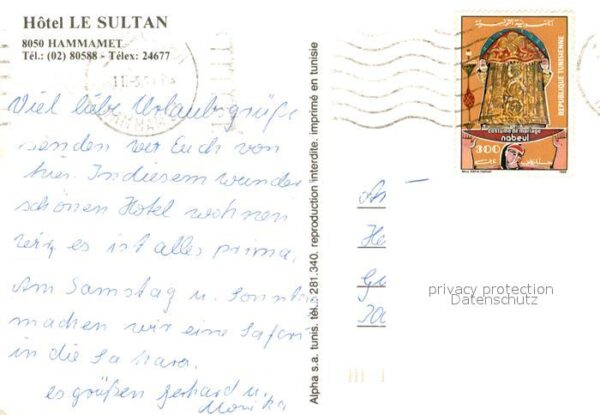 Hôtel LE SULTAN
8050 HAMMAMET
Tél.: (02) 80588 - Télex: 24677
Viel liebe Urlaubsgrüße
senden wir Euch von
hier. In diesem wunder
schönen Hotel wohnen
wir, es ist alles prima.
Am Samstag u. Sonnta
machen wir eine Safari
in die Sahara.
es grüßen Gerhard u.
Monika
Alpha s.a. tunis. tél.: 281.340. reproduction interdite. imprimé en tunisie
REPUBLIQUE TUNISIENNE
costume de mariage
nabeul
300
An
He
privacy protection
Datenschutz